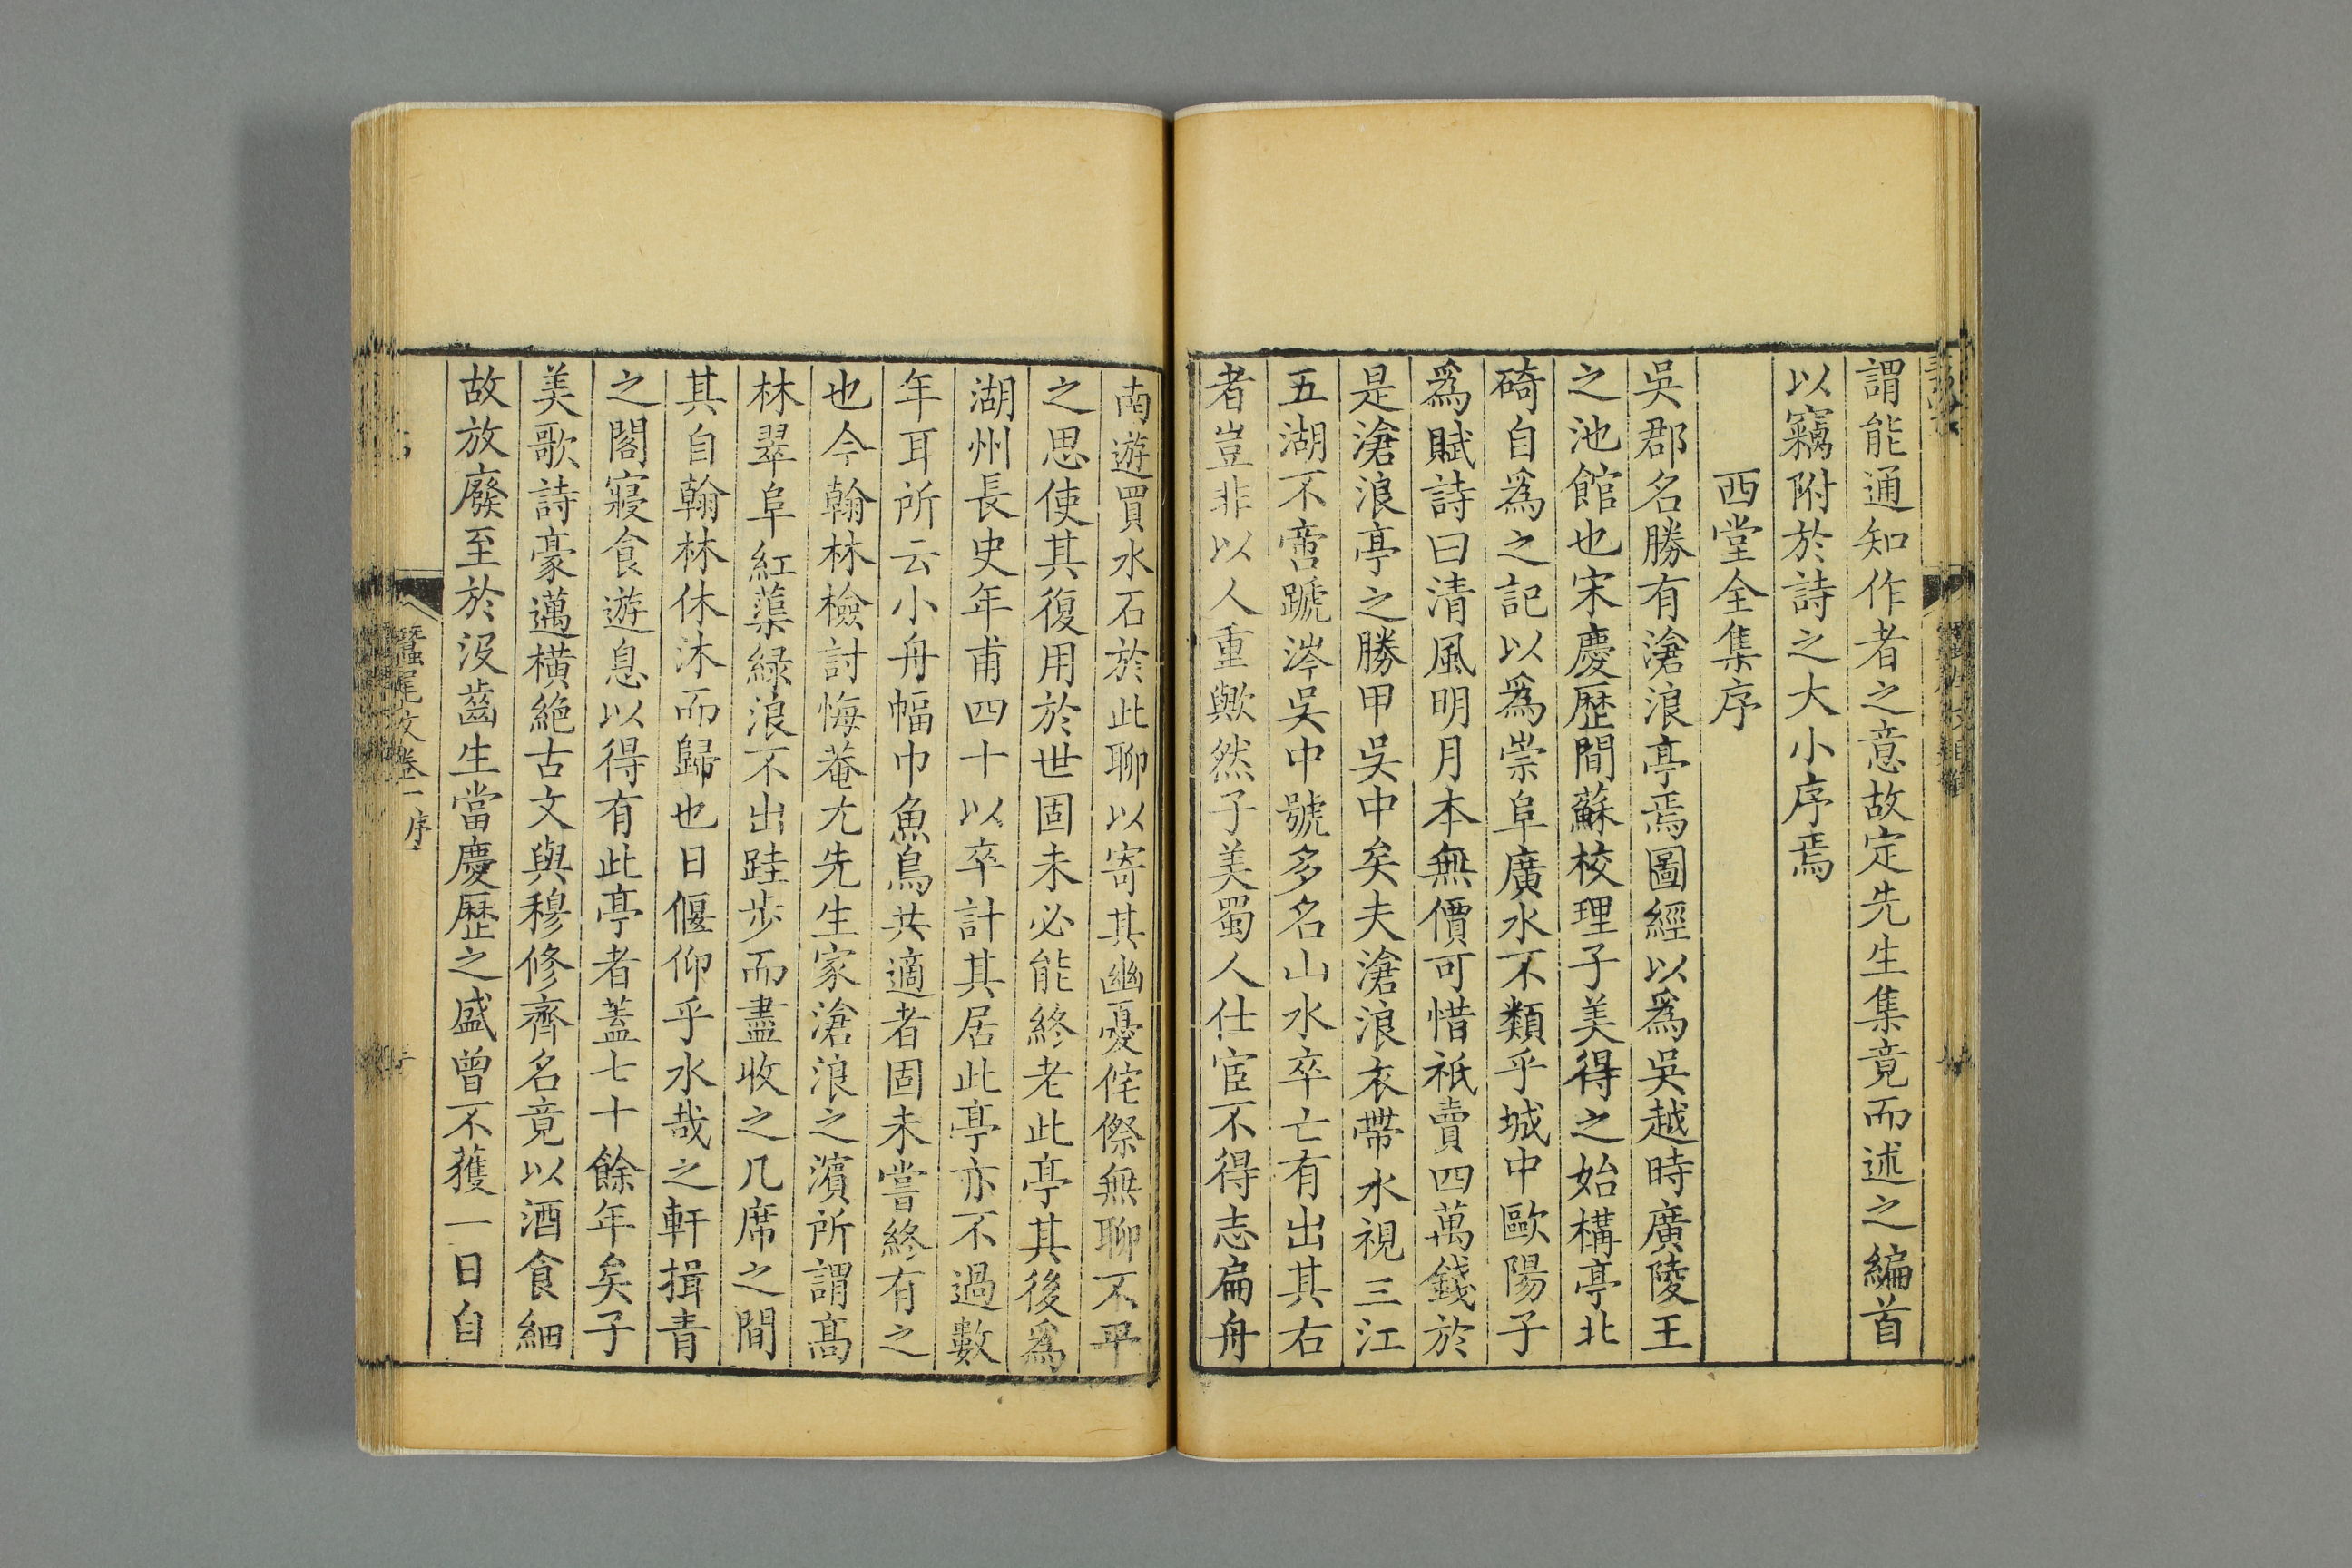 謂能通知作者之意故定先生集竟而述之編首
以竊附於詩之大小序焉
西堂全集序
吳郡名勝有滄浪亭焉圖經以爲吳越時廣陵王
之池館也宋慶歷間蘇校理子美得之始構亭北
碕自爲之記以爲崇阜廣水不類乎城中歐陽子
爲賦詩曰清風明月本無價可惜祇賣四萬錢於
是滄浪亭之勝甲吳中矣夫滄浪衣帶水視三江
五湖不啻蹏涔吳中號多名山水卒亡有出其右
者豈非以人重歟然子美蜀人仕宦不得志扁舟
南遊買水石於此聊以寄其幽憂侘傺無聊不平
之思使其復用於世固未必能終老此亭其後爲
湖州長史年甫四十以卒計其居此亭亦不過數
年耳所云小舟幅巾魚鳥共適者固未嘗終有之
也今翰林檢討悔菴尤先生家滄浪之濱所謂高
林翠阜紅蕖綠浪不出跬步而盡收之几席之間
其自翰林休沐而歸也日偃仰乎水哉之軒揖青
之閣寢食遊息以得有此亭者蓋七十餘年矣子
美歌詩豪邁橫絕古文與穆修齊名竟以酒食細
故放廢至於沒齒生當慶歷之盛曾不獲一日自
蠶尾文卷一序